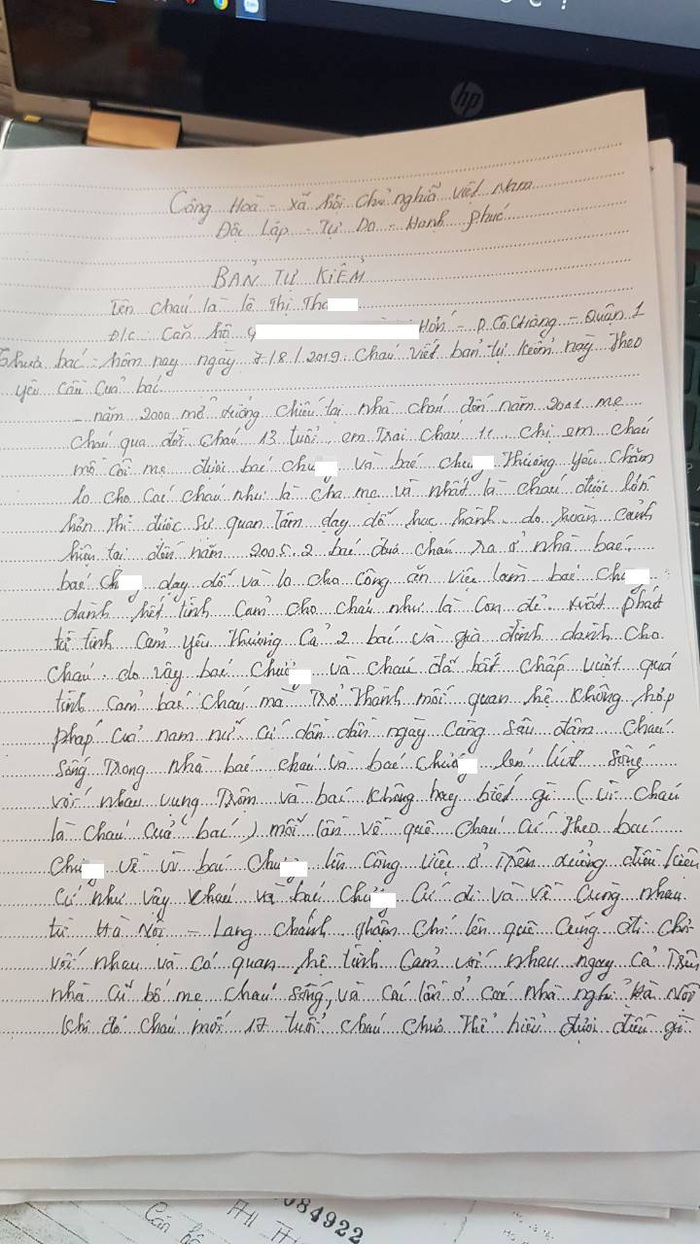 hp
Công Hoà - Xã hội chủ nghĩa Việt Nam
Độc Lập - Tự Do - Hạnh phúc
BẢN TỰ KIỂM
Tên cháu là lê Thị Tho
Đ/c Căn hộ Hơn - P. Cô Giàng - Quận 1
Thưa bác: hôm nay ngày 7/8/2019. Cháu viết bản tự kiểm này Theo
yêu cầu của bác
- năm 2000 mở đường chiếu tại nhà cháu đến năm 2001 mẹ
cháu qua đời cháu 13 tuổi, em Trai cháu 11. chị em cháu
mồ côi mẹ được bác chu và bác chu Thương yêu chăm
lo cho các cháu như là cha mẹ và nhất là cháu được lớn
hơn thì được sự quan tâm dạy dỗ học hành. do hoàn cảnh
hiện tại đến năm 2005. 2 bác đưa cháu ra ở nhà bác.
bác ch dạy dỗ và lo cho công ăn việc làm bác Ch
dành hết tình cảm cho cháu như là con đẻ. xuất phát
từ tình cảm yêu thương cả 2 bác và gia đình dành cho
cháu. do vậy bác Chu và cháu đã bất chấp vượt quá
tình cảm bác cháu mà Trở Thành mối quan hệ không hợp
pháp của nam nữ. cứ dần dần ngày càng sâu đậm cháu
sống Trong nhà bác cháu và bác Chu lén lút sống
với nhau vụng Trộm và bác không hay biết gì (vì cháu
là cháu của bác) mỗi lần về quê cháu cứ theo bác
Chu về vì bác Chu lên công việc ở Trên đường điều kiện
cứ như vậy cháu và bác Chu cứ đi và về cùng nhau
từ Hà Nội - Lang Chánh. Thậm chí lên quê cũng đi chơi
với nhau và có quan hệ tình cảm với nhau ngay cả Trên
nhà cũ bố mẹ cháu sống, và các lần ở các nhà nghỉ Hà Nội
khi đó cháu mới 17 tuổi cháu chưa thể hiểu được điều gì.
084922
Căn hộ